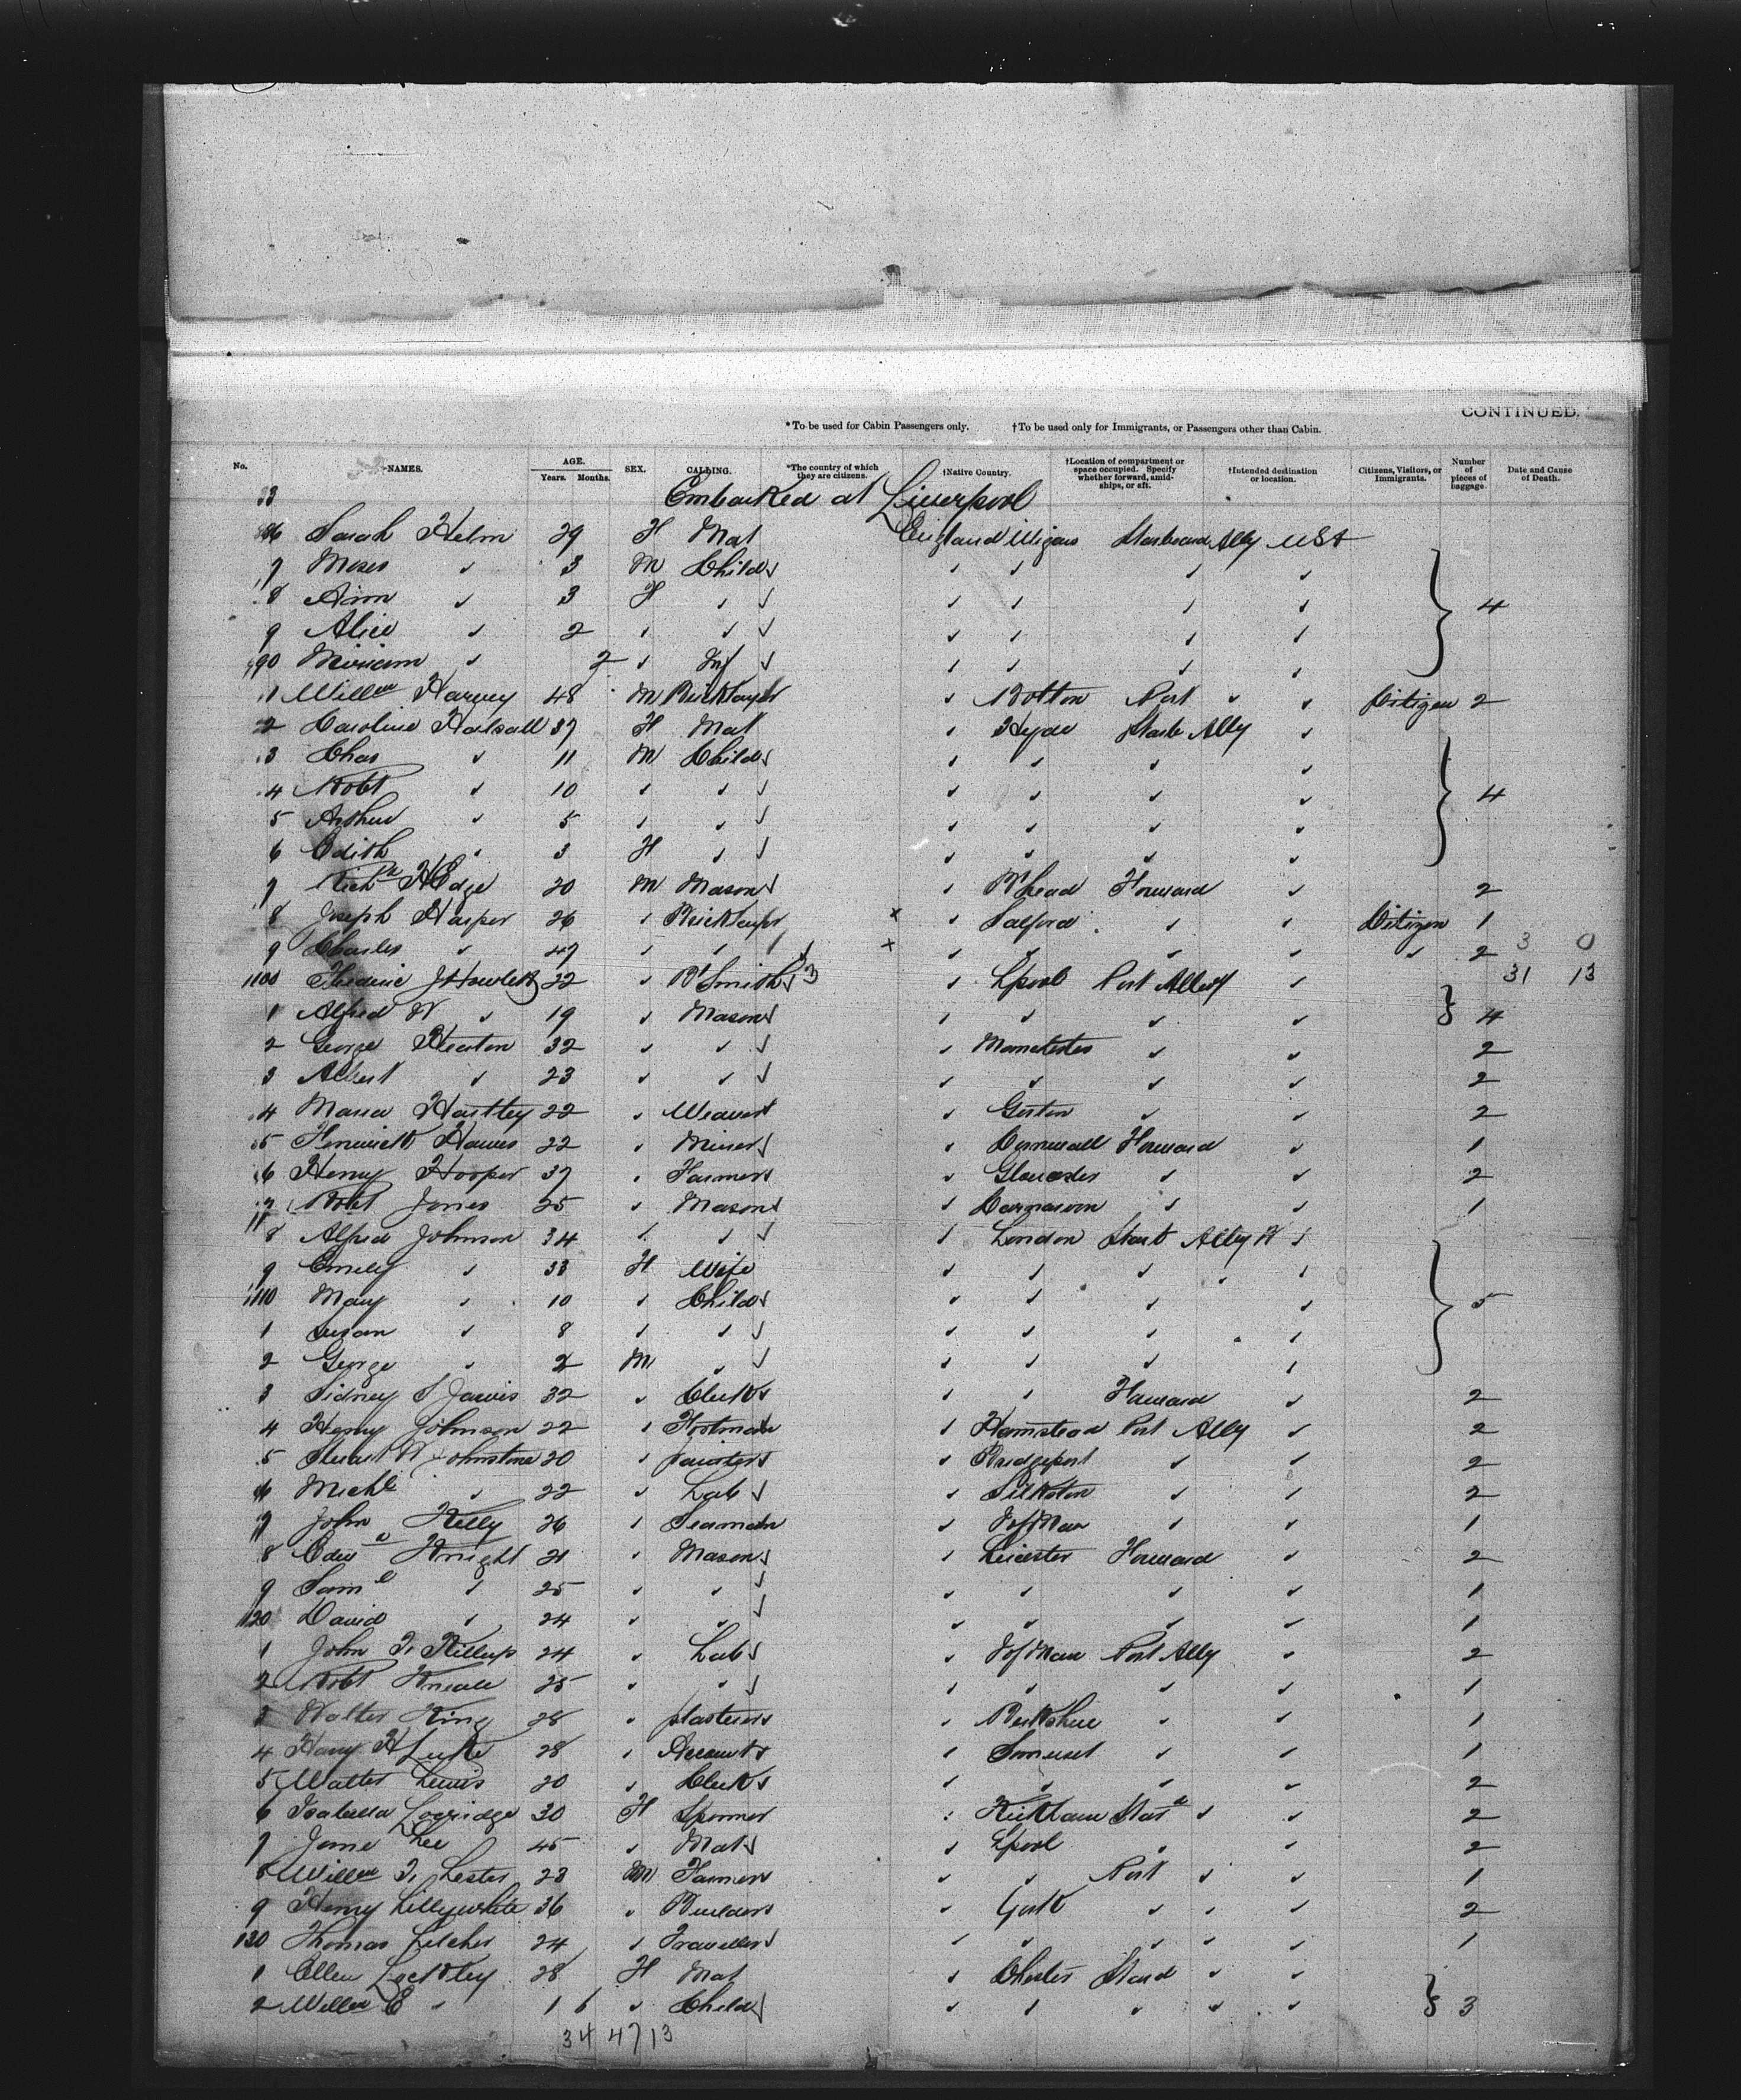 CONTINUED.
*To be used for Cabin Passengers only. †To be used only for Immigrants, or Passengers other than Cabin.
No. NAMES. AGE. Years. Months. SEX. CALLING. *The country of which they are citizens. †Native Country. †Location of compartment or space occupied. Specify whether forward, amidships, or aft. †Intended destination or location. Citizens, Visitors, or Immigrants. Number of pieces of baggage. Date and Cause of Death.
Embarked at Liverpool
86 Sarah Helm 29 F Mat England Wigan Starboard Ally USA
7 Moses " 3 M Child " " " "
8 Ann " 3 F " " " " " 4
9 Alice " 2 " " " " " "
90 Miriam " 2 " Inf " " " "
1 Willm Harvey 48 M Bricklayer " Bolton Port " " Citizen 2
2 Caroline Halsall 37 F Mat " Hyde Starb Ally "
3 Chas " 11 M Child " " " "
4 Robt " 10 " " " " " " 4
5 Arthur " 5 " " " " " "
6 Edith " 3 F " " " " "
7 Richd H Edge 20 M Mason " B'head Forward " 2
8 Joseph Harper 26 " Bricklayer x " Salford " " Citizen 1
9 Charles " 47 " " x " " " " " 2 3 0
1100 Frederic J Howlett 22 " Bl Smith 3 " Lpool Port Alley " 31 13
1 Alfred W " 19 " Mason " " " " 4
2 George Heaton 32 " " " Manchester " " 2
3 Albert " 23 " " " " " " 2
4 Maria Hartley 22 " Weaver " Gorton " " 2
5 Hawes 22 " Miner " Cornwall Forward " 1
6 Henry Hooper 37 " Farmer " Gloucester " " 2
7 Robt Jones 25 " Mason " Carnarvon " " 1
8 Alfred Johnson 34 " " " London Starb Ally "
9 Emily " 33 F Wife " " " " "
1110 May " 10 " Child " " " " 5
1 Susan " 8 " " " " " "
2 George " 2 M " " " " "
3 Sidney S Jarvis 32 " Clerk " " Forward " 2
4 Henry Johnson 22 " Footman " Hamstead Port Ally " 2
5 Johnstone 20 " painter " Bridgeport " " 2
6 Michl " 22 " Lab " Silkston " " 2
7 John Kelly 26 " Seaman " I of Man " " 1
8 Edwd Knight 21 " Mason " Leicester Forward " 2
9 Saml " 25 " " " " " " 1
1120 David " 24 " " " " " " 1
1 John T. Killip 24 " Lab " I of Man Port Ally " 2
2 Robt Kneale 25 " " " " " " 1
3 Walter King 28 " plasterer " Berkshire " " 1
4 Harry H Luke 28 " Accountt " Somerset " " 1
5 Walter Lewis 20 " Clerk " " " " 2
6 Isabella 30 F Spinner " Kirkham Stard " " 2
7 Jane Lee 45 " Mat " Lpool " " 2
8 Willm T. Lester 23 M Farmer " " Port " " 1
9 Henry Lillywhite 36 " Builder " York " " " 2
130 Thomas 24 " Traveller " " " " " 1
1 Ellen Lockley 28 F Mat " Chester Stard " "
2 Willm E " 1 6 " Child " " " " " 3
34 47 13